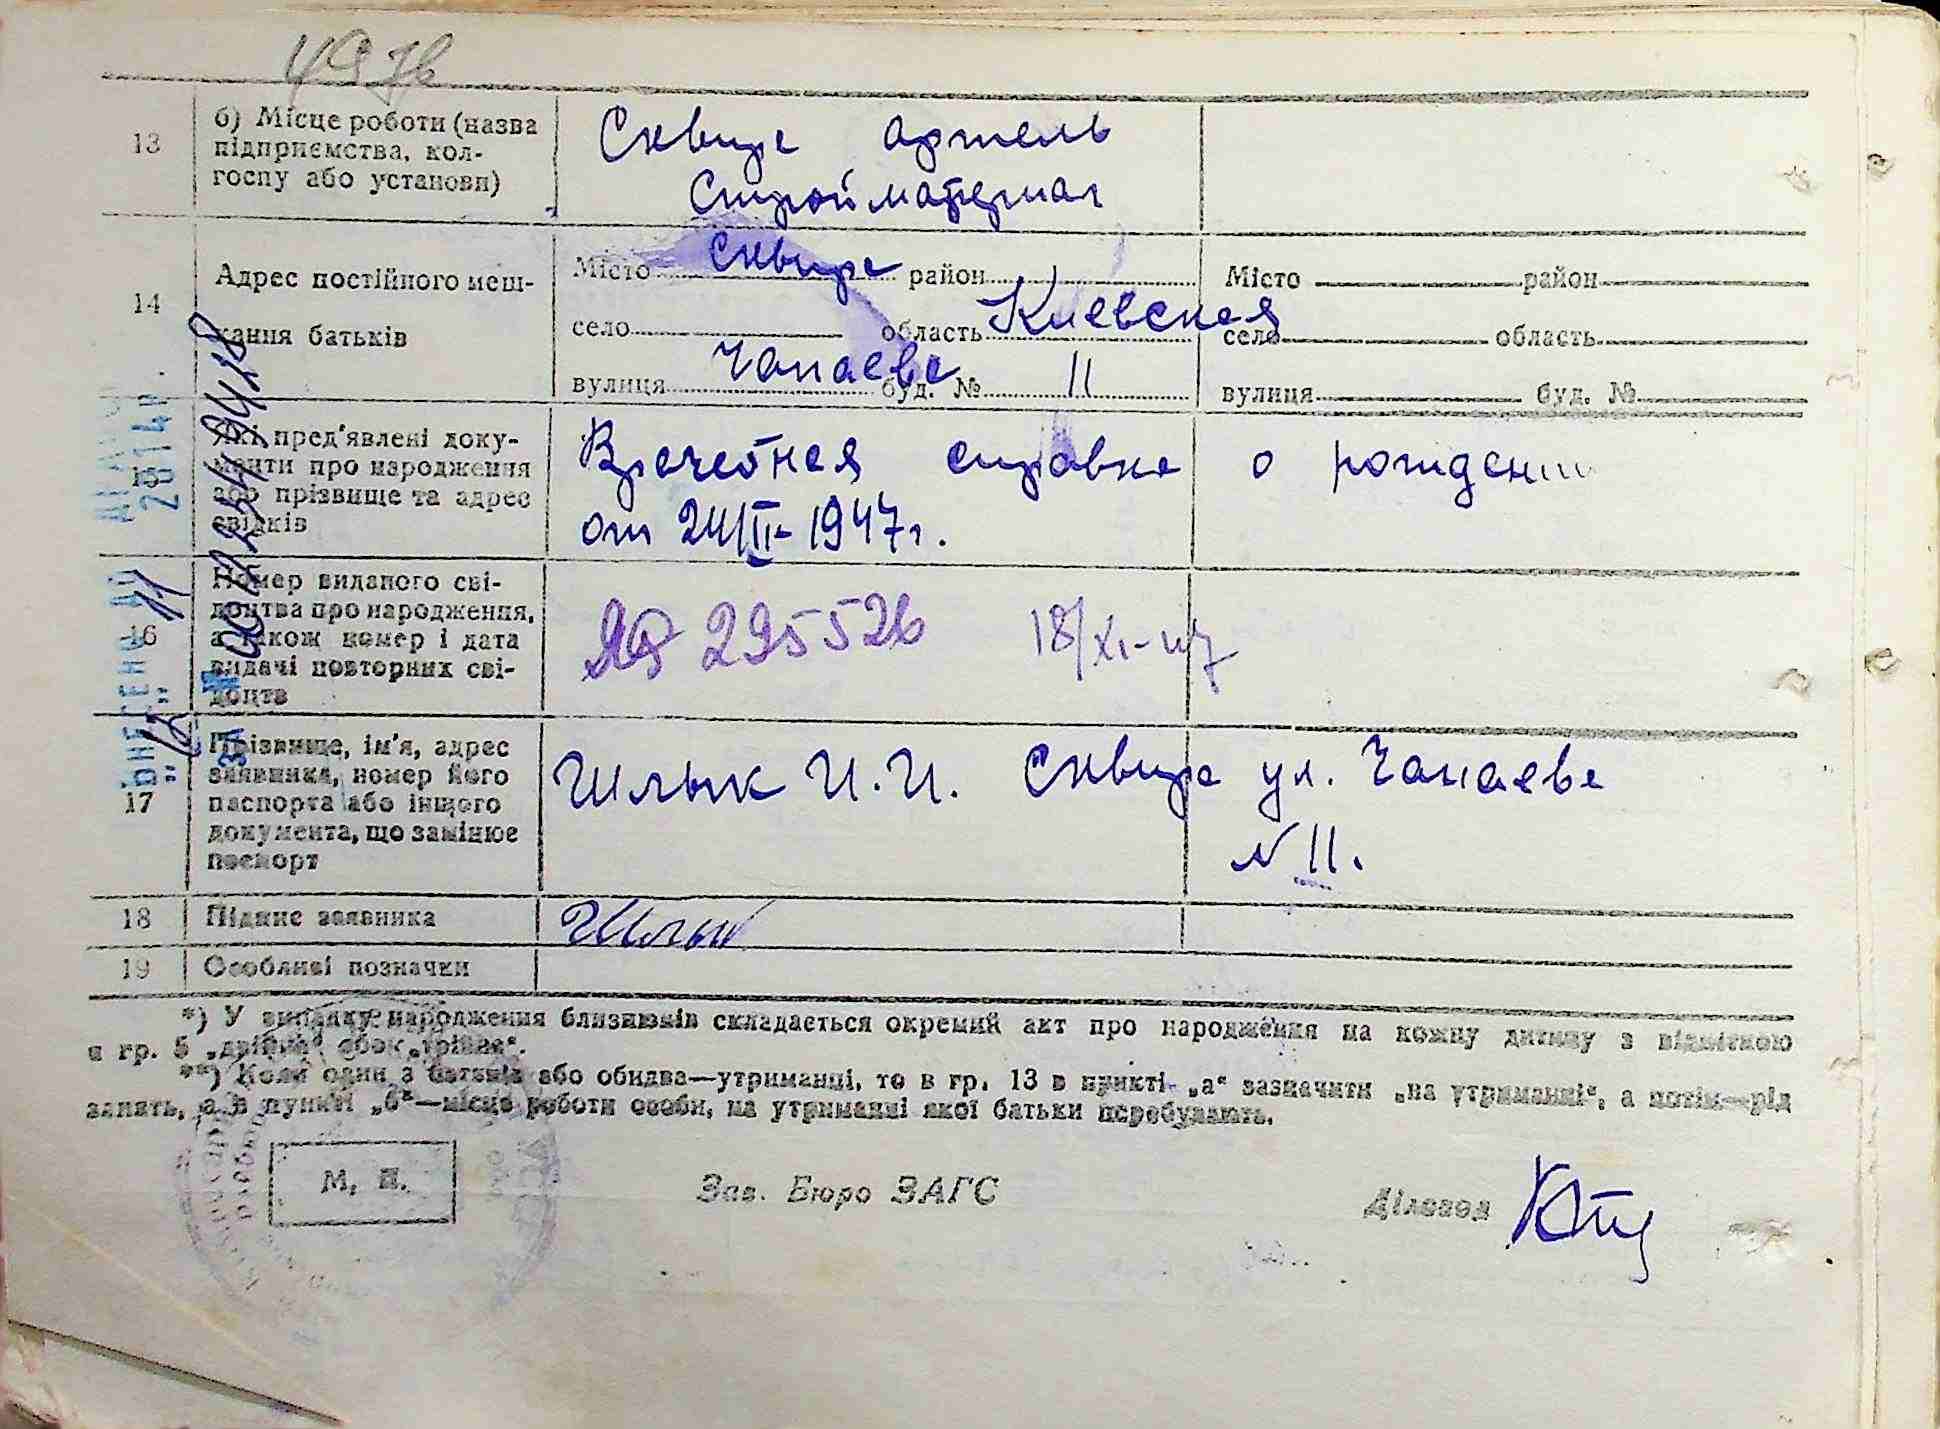 13
б) Місце роботи (назва
підприємства, кол-
госпу або установи)
Сквира артель
Стройматериал
14
Адрес постійного меш-
кання батьків
Місто Сквира район
село область Киевская
вулиця Чапаева буд. № 11
Місто район
село область
вулиця буд. №
15
Які пред'явлені доку-
менти про народження
або прізвище та адрес
свідків
Врачебная справка о рождении
от 24/II-1947г.
16
Номер виданого сві-
доцтва про народження,
а також номер і дата
видачі повторних сві-
доцтв
295526 18/XI-47
17
Прізвище, ім'я, адрес
заявника, номер його
паспорта або іншого
документа, що замінює
паспорт
Шлык И.И. Сквира ул. Чапаева
№ 11.
18
Підпис заявника
Шлык
19
Особливі позначки
*) У випадку народження близнюків складається окремий акт про народження на кожну дитину з відміткою
в гр. 5 „двійня" або „трійня".
**) Коли один з батьків або обидва—утриманці, то в гр. 13 в пункті „а" зазначити „на утриманні", а потім—рід
занять, а в пункті „б"—місце роботи особи, на утриманні якої батьки перебувають.
М. П.
Зав. Бюро ЗАГС
Діловод